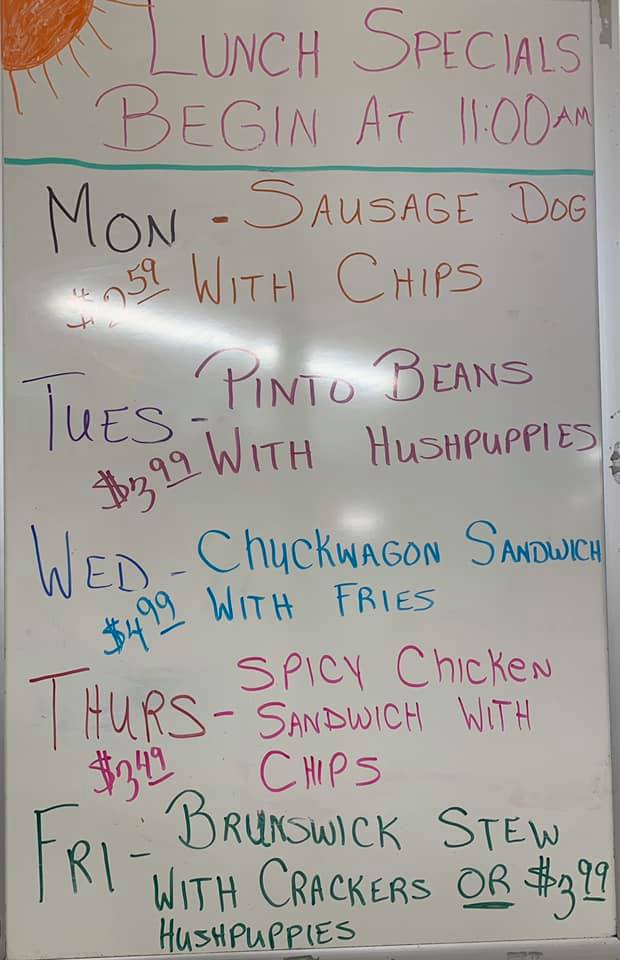 LUNCH SPECIALS
BEGIN AT 11:00 AM
MON - SAUSAGE DOG
$2.59 WITH CHIPS
TUES - PINTO BEANS
$3.99 WITH HUSHPUPPIES
WED - ChuckWAGON SANDWICH
$4.99 WITH FRIES
THURS - SPICY ChickEN
SANDWICH WITH
$3.49 CHIPS
FRI - BRUNSWICK STEW
WITH CRACKERS OR $3.99
HUSHPUPPIES